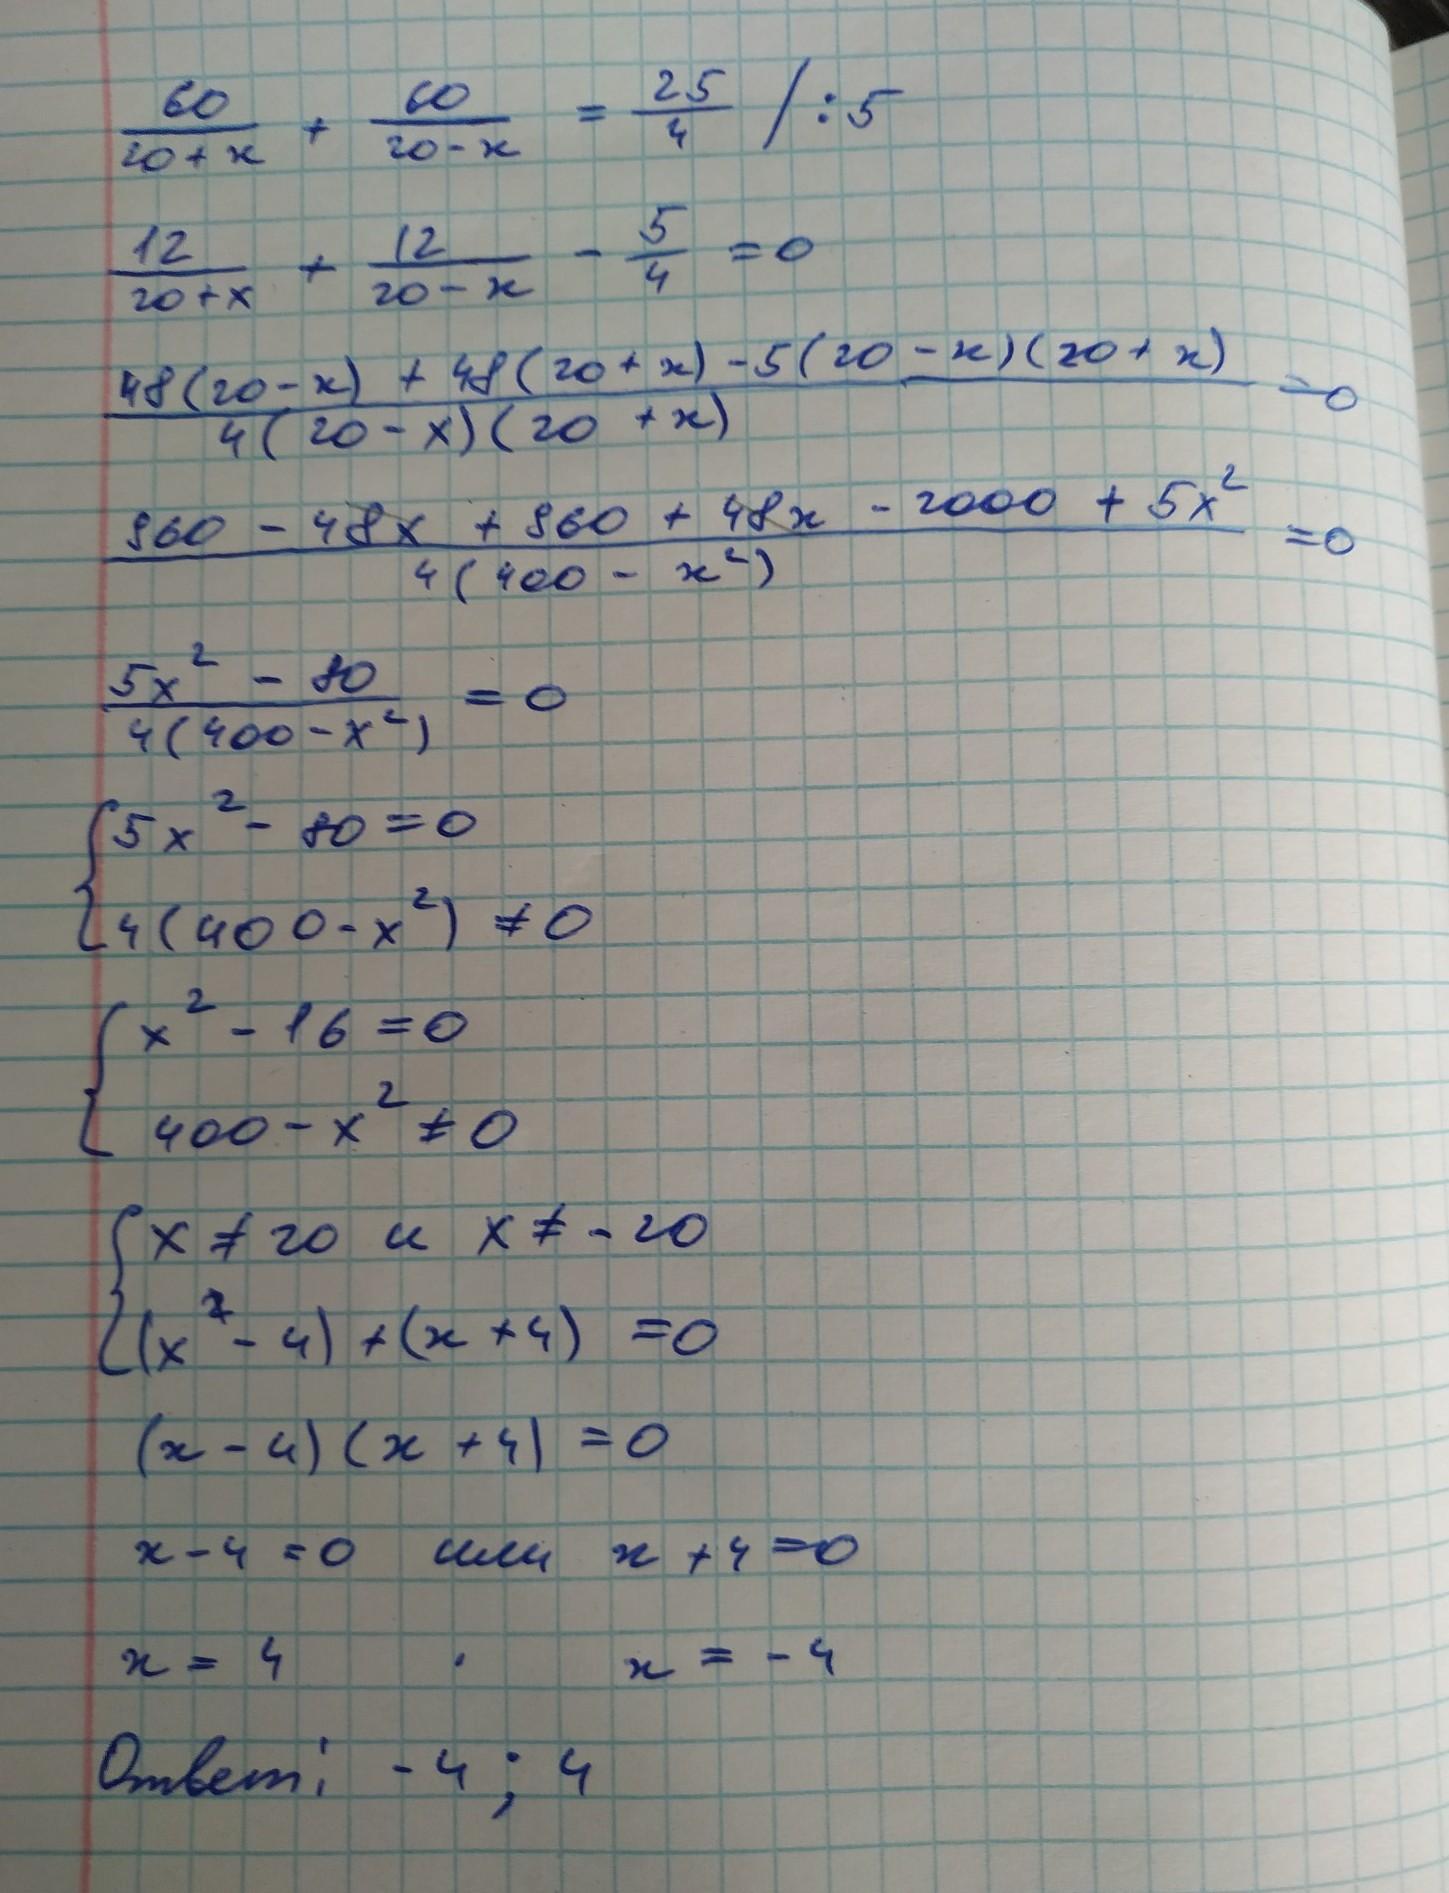 60/(20+x) + 60/(20-x) = 25/4 /:5
12/(20+x) + 12/(20-x) - 5/4 = 0
(48(20-x) + 48(20+x) - 5(20-x)(20+x))/(4(20-x)(20+x)) = 0
(960 - 48x + 960 + 48x - 2000 + 5x²)/(4(400 - x²)) = 0
(5x² - 80)/(4(400-x²)) = 0
{5x² - 80 = 0
4(400-x²) ≠ 0
{x² - 16 = 0
400 - x² ≠ 0
{x ≠ 20 и x ≠ -20
(x² - 4) + (x + 4) = 0
(x - 4)(x + 4) = 0
x - 4 = 0 или x + 4 = 0
x = 4 x = -4
Ответ: -4; 4